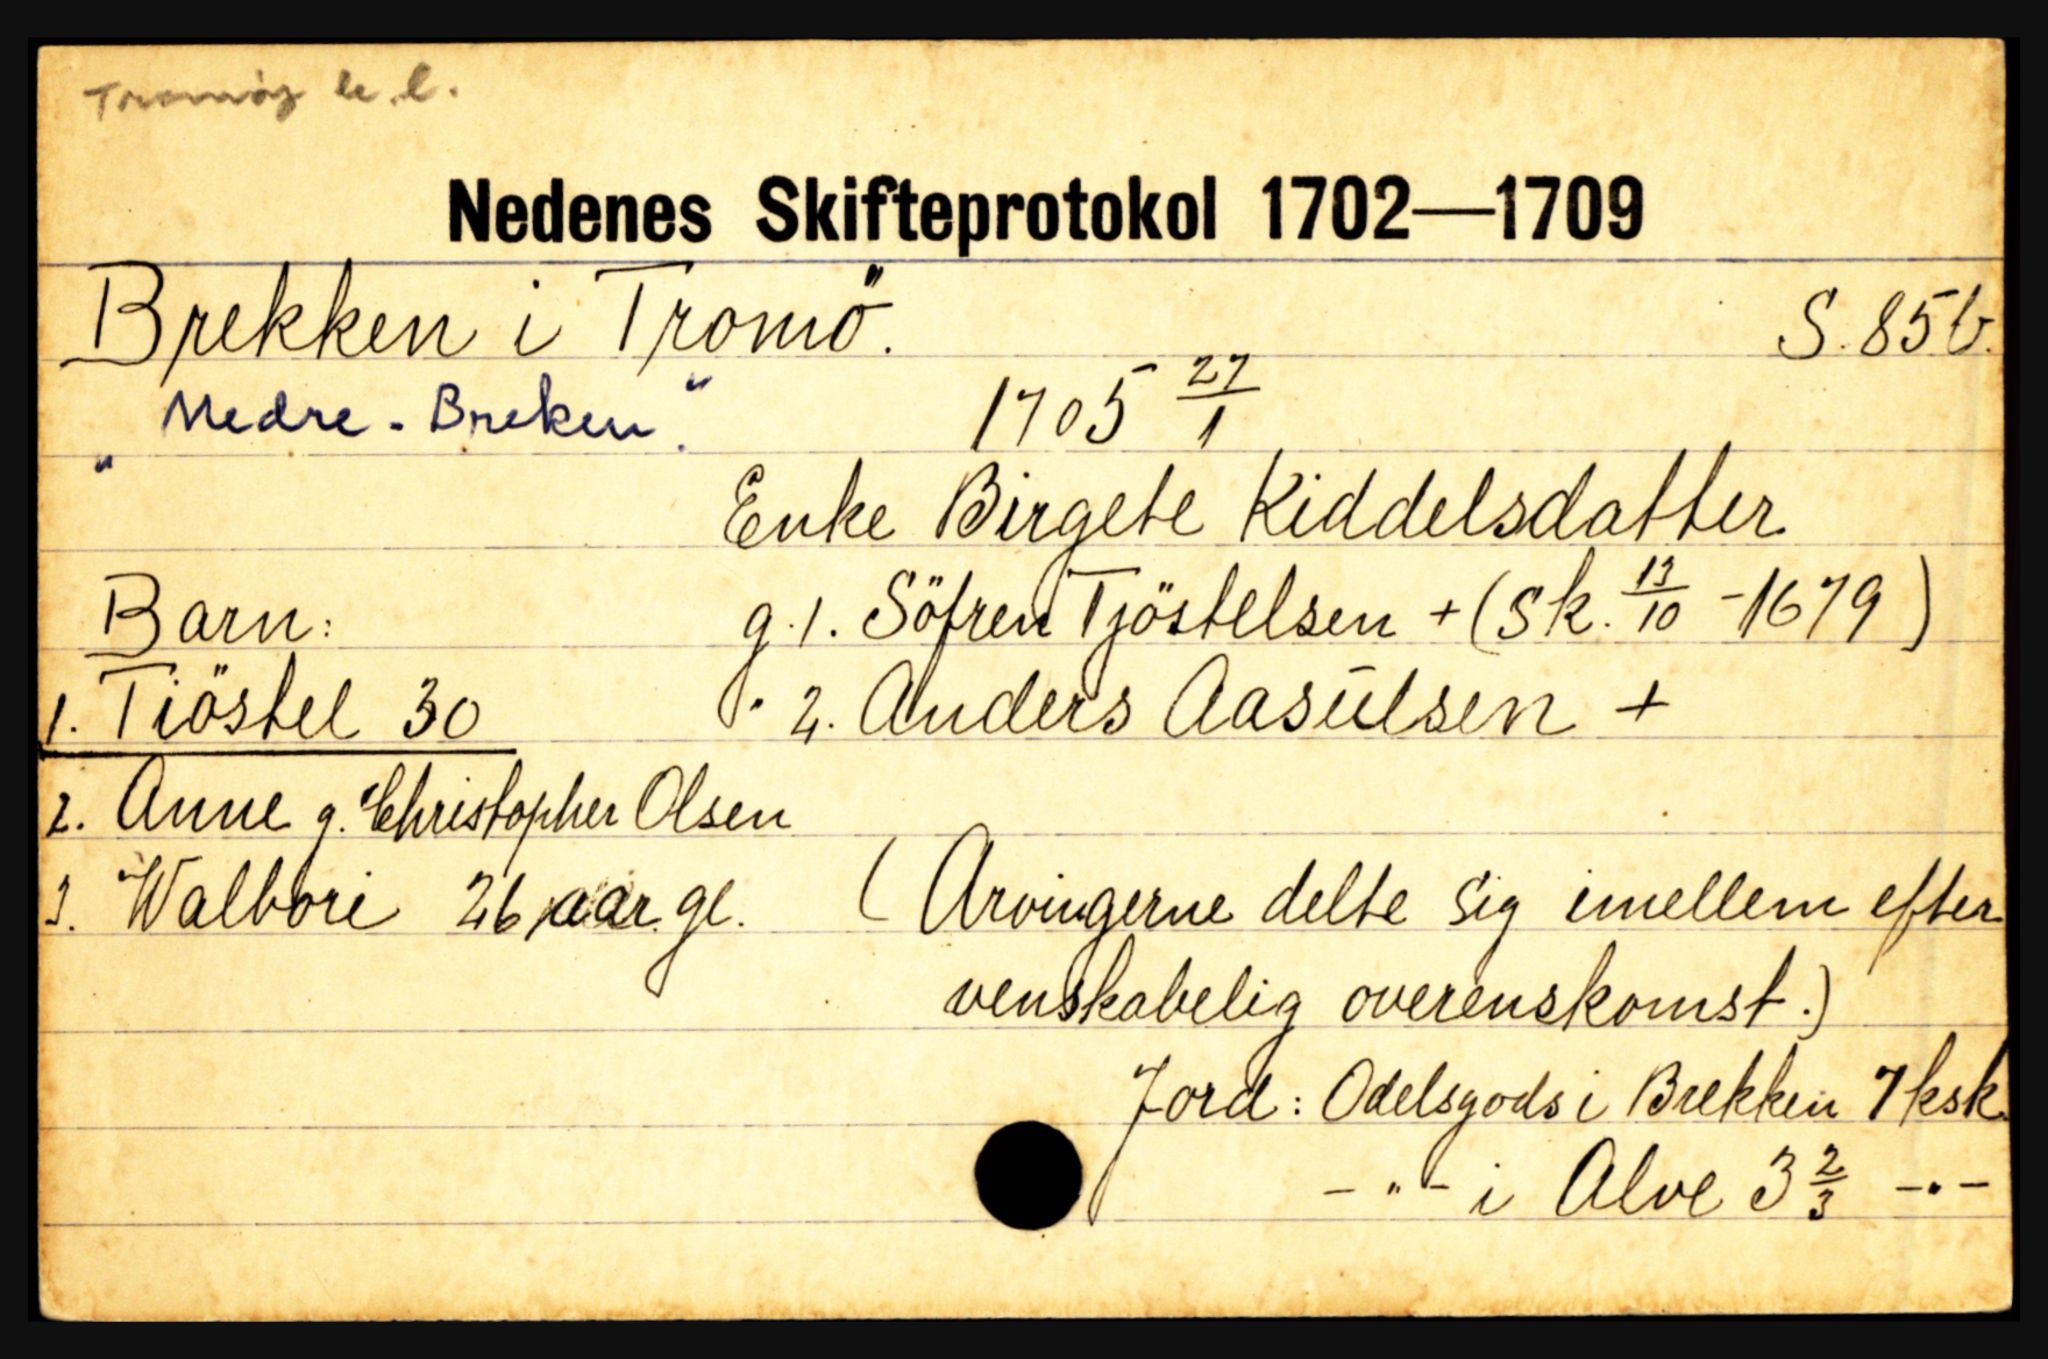 Tromøy l.l.
Nedenes Skifteprotokol 1702—1709
Brekken i Tromö. S. 85b.
"Nedre-Breken." 1705 27/1
Enke Birgete Kiddelsdatter
Barn: g. 1. Söfren Tjöstelsen + (Sk. 13/10 - 1679)
1. Tiöstel 30 " 2. Anders Aasulsen +
2. Anne g. Christopher Olsen
3. Walbori 26 aar gl. (Arvingerne delte sig imellem efter
venskabelig overenskomst.)
Jord: Odelsgods i Brekken 7 ksk.
- " - i Alve 3 2/3 - " -